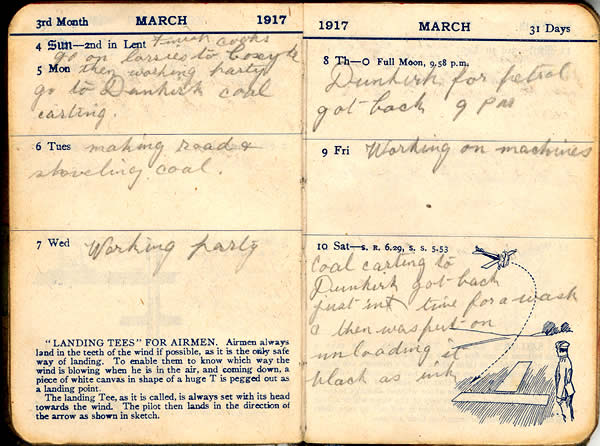 3rd Month MARCH 1917
4 Sun—2nd in Lent Finish cooks
go on lorries to Coxyde
5 Mon then working party
go to Dunkirk coal
carting.
6 Tues making road &
shoveling coal.
7 Wed Working party
"LANDING TEES" FOR AIRMEN. Airmen always
land in the teeth of the wind if possible, as it is the only safe
way of landing. To enable them to know which way the
wind is blowing when he is in the air, and coming down, a
piece of white canvas in shape of a huge T is pegged out as
a landing point.
The landing Tee, as it is called, is always set with its head
towards the wind. The pilot then lands in the direction of
the arrow as shown in sketch.
1917 MARCH 31 Days
8 Th—O Full Moon, 9.58 p.m.
Dunkirk for petrol
got back 9 pm
9 Fri Working on machines
10 Sat—S. R. 6.29, S. S. 5.53
Coal carting to
Dunkirk got back
just in time for a wash
& then was put on
unloading it
black as ink